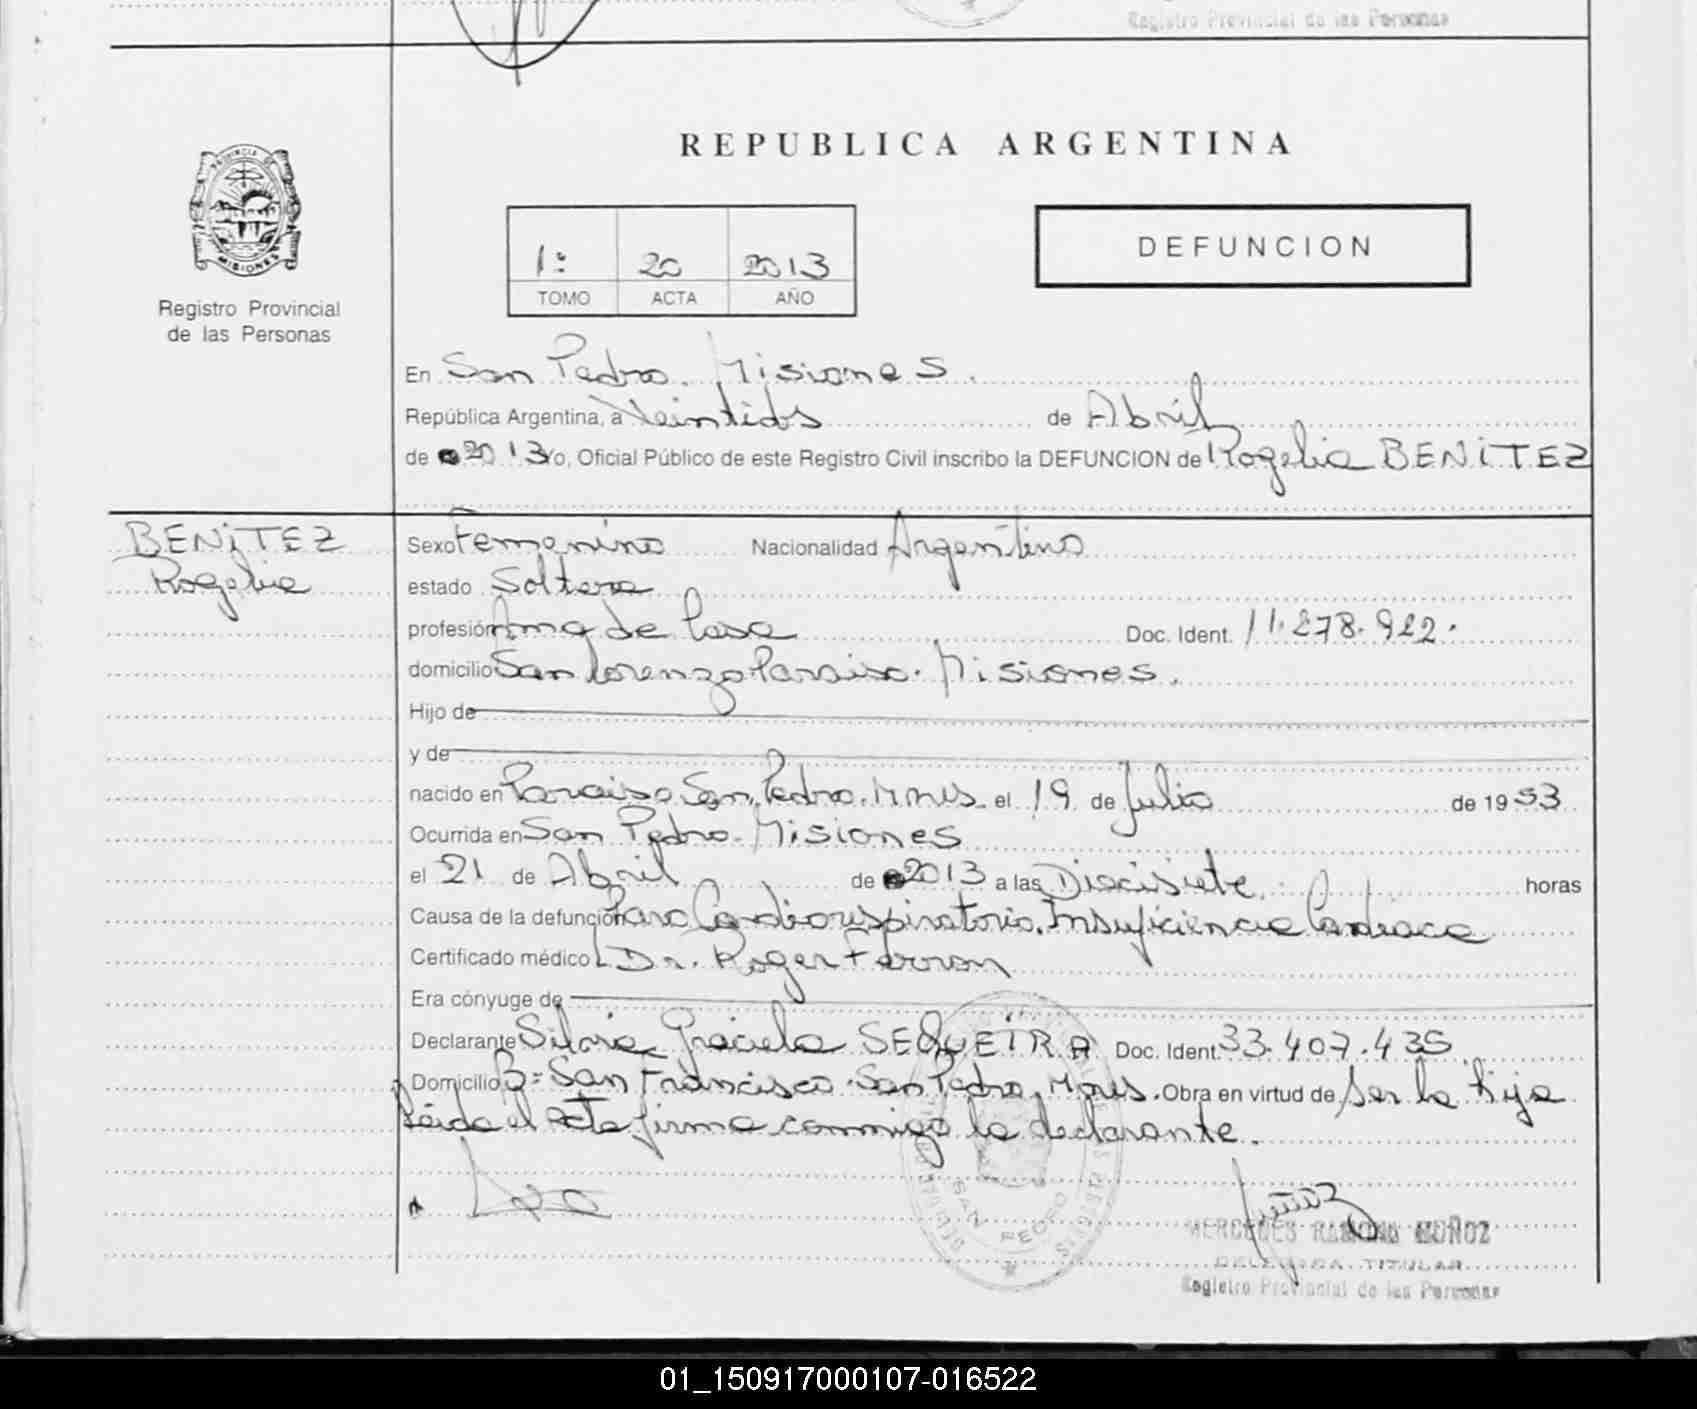 Registro Provincial de las Personas
REPUBLICA ARGENTINA
PROVINCIA DE
MISIONES
Registro Provincial
de las Personas
1º 20 2013
TOMO ACTA AÑO
DEFUNCION
En San Pedro. Misiones.
República Argentina, a Veintidós de Abril
de 2013 Yo, Oficial Público de este Registro Civil inscribo la DEFUNCION de Rogelia BENiTEZ
BENiTEZ
Rogelia
Sexo Femenino Nacionalidad Argentino
estado Soltera
profesión Ama de Casa Doc. Ident. 11.278.922.
domicilio San Lorenzo Paraiso. Misiones.
Hijo de
y de
nacido en Paraiso San Pedro. Mnes. el 19 de Julio de 1953
Ocurrida en San Pedro. Misiones
el 21 de Abril de 2013 a las Diecisiete. horas
Causa de la defunción Paro Cardiorespiratorio. Insuficiencia Cardiaca
Certificado médico Dr. Roger Ferron
Era cónyuge de
Declarante Silvia Graciela SEQUEiRA Doc. Ident. 33.407.435
Domicilio Bº San Francisco. San Pedro. Mnes. Obra en virtud de Ser la hija
Leída el acta firma conmigo la declarante.
SAN PEDRO
MERCEDES RAMONA MUÑOZ
DELEGADA TITULAR
Registro Provincial de las Personas
01_150917000107-016522